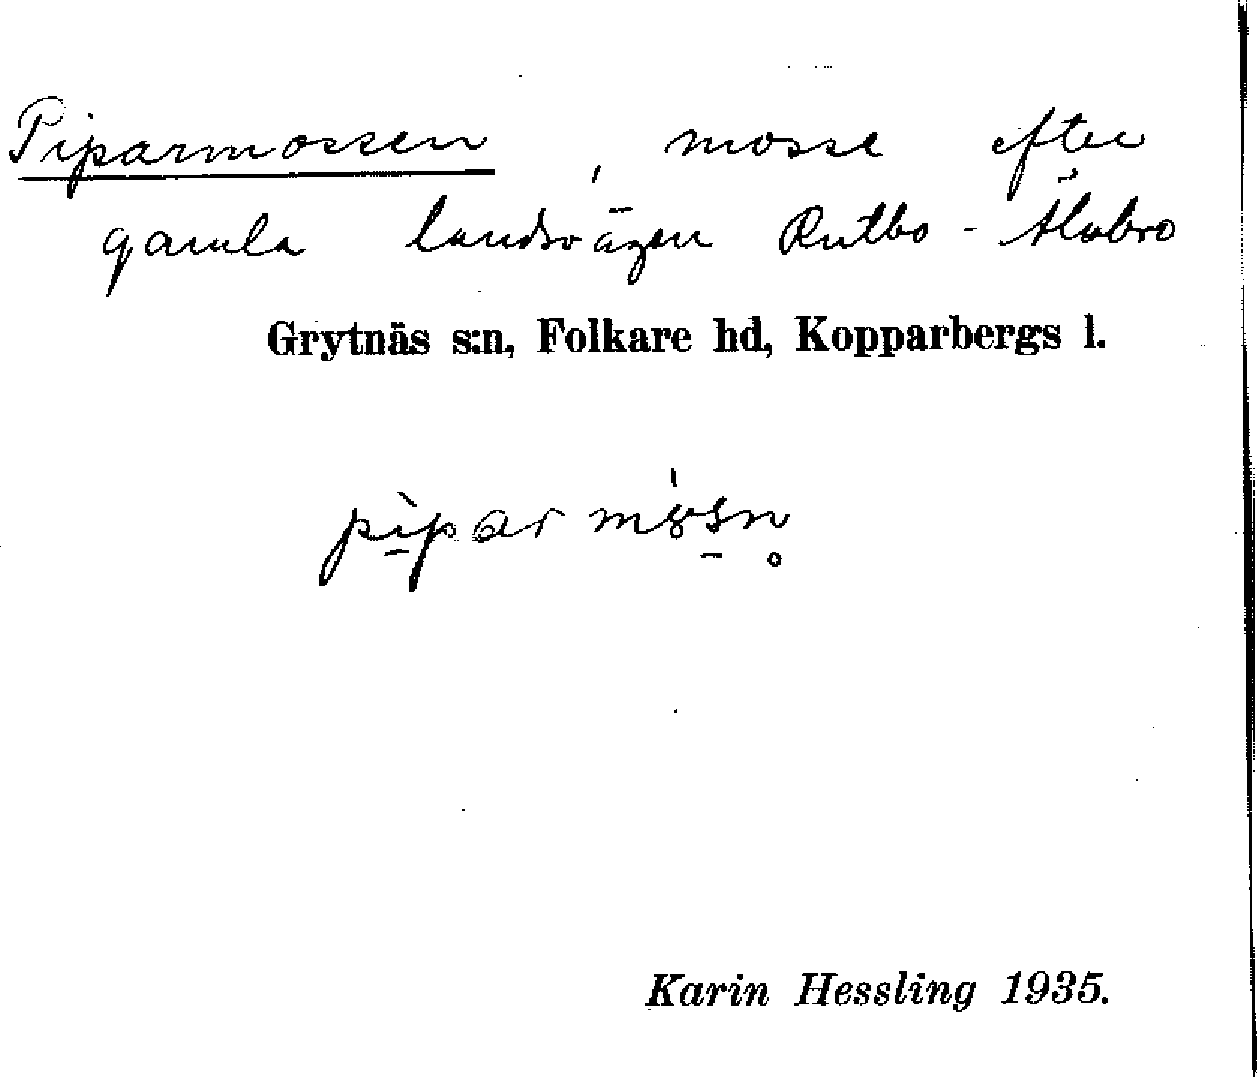 Piparmossen, mosse efter
gamla landsvägen Rutbo - Älvbro
Grytnäs s:n, Folkare hd, Kopparbergs l.
Karin Hessling 1935.